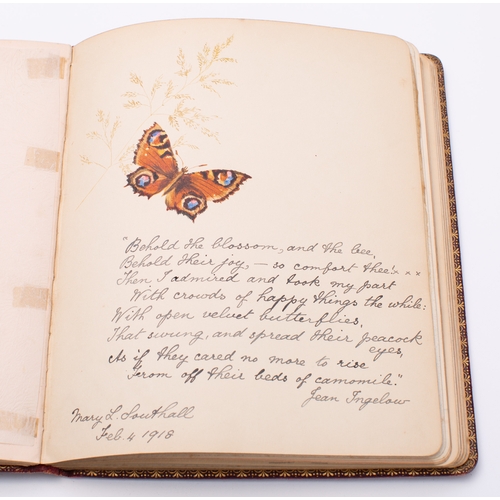 "Behold the blossom, and the bee,
Behold their joy, — so comfort thee! x x x
Then I admired and took my part
With crowds of happy things the while:
With open velvet butterflies,
That swung, and spread their peacock
eyes,
As if they cared no more to rise
From off their beds of camomile."
Jean Ingelow
Mary L. Southall
Feb. 4 1918